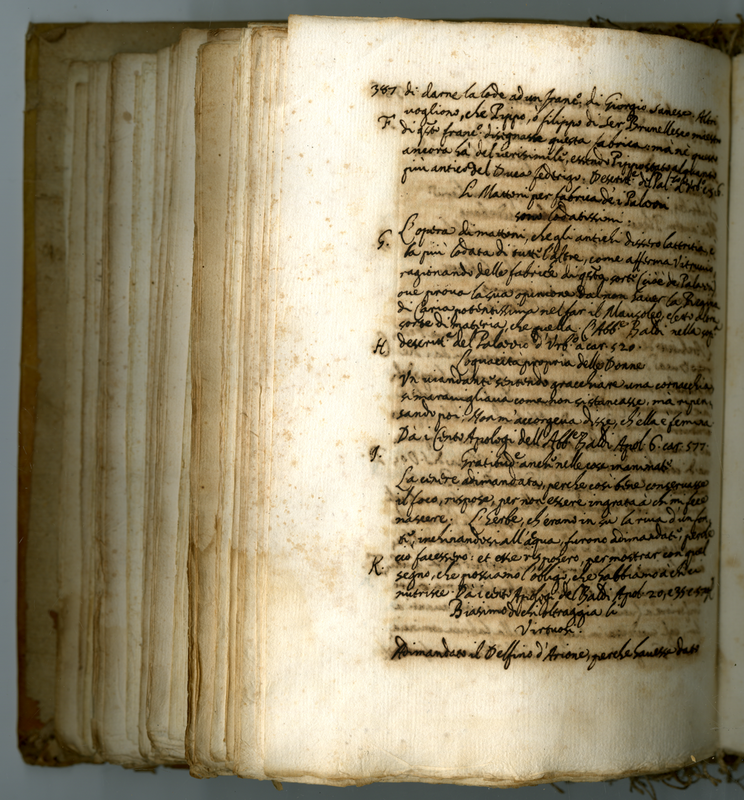 387 di darne la lode ad un Franc.º di Giorgio Sanese. Altri
vogliono, che Pippo, ò Filippo di Ser Brunellesco
F. di q.sto Franc.º disegnasse questa fabrica, ma nè questo
ancora hà del verisimile, essendo Pippo stato alquanto
più antico del Duca Fedrigo. Descritt.e del Pal.
Li Mattoni per fabrica de i Palazzi
sono lodatissimi.
G. L'opera di mattoni, che gli antichi dissero lateritia, è
la più lodata di tutte l'altre, come afferma Vitruvio
ragionando delle fabrice di q.sta sorte
ove prova la sua opinione dal non haver la Regina
di Caria potentissima nel far il Mausoleo, eletto altra
sorte di materia, che quella. L'Abb.e Baldi nella
descritt.e del Palazzo d'Urb.º à car. 520.
H. Loquacità propria delle Donne
Un viandante sentendo gracchiare una cornacchia,
si maravigliava come non si stancasse, ma ripen
sando poi: Non m'accorgeva disse, ch'ella è femina
Da i Cento Apologi dell'Abb.e Baldi Apol. 6. car. 577.
I. Gratitud.e anch'nelle cose inanimate
La cenere adimandata, perche così bene conservasse
il foco, rispose, per non essere ingrata à chi mi fece
nascere. L'Herbe, ch'erano in su la riva d'un fon
te, inchinandosi all'acqua, furono adimandate, perche
ciò facessero: et esse risposero, per mostrar con qual
K. segno, che possiamo l'obligo, che habbiamo à chi ci
nutrisce. Da i cento Apologi del Baldi Apol. 20, e 35
Biasimo di chi oltraggia li
Virtuosi.
Adimandato il Delfino d'Arione, perche havesse dato